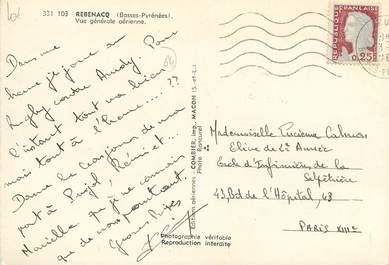 331 103 REBENACQ (Basses-Pyrénées).
Vue générale aérienne.
Dans une
heure je joue au
Rugby contre Audy. Pour
l'instant tout va bien
mais tout à l'heure.... ??
Donne le bonjour de ma
part à Pujol, Rémi et...
Marielle que je ne connais
que de nom pourtant.
Grosses Bises
Editions aériennes - COMBIER, imp. MACON (S.-et-L.)
Photo Rancurel
Photographie véritable
Reproduction interdite
REPUBLIQUE FRANÇAISE
0,25
Mademoiselle Lucienne Calmon
Elève de 2e Année
Ecole d'Infirmières de la
Salpêtrière
43, Bd de l'Hôpital, 43
PARIS XIIIe